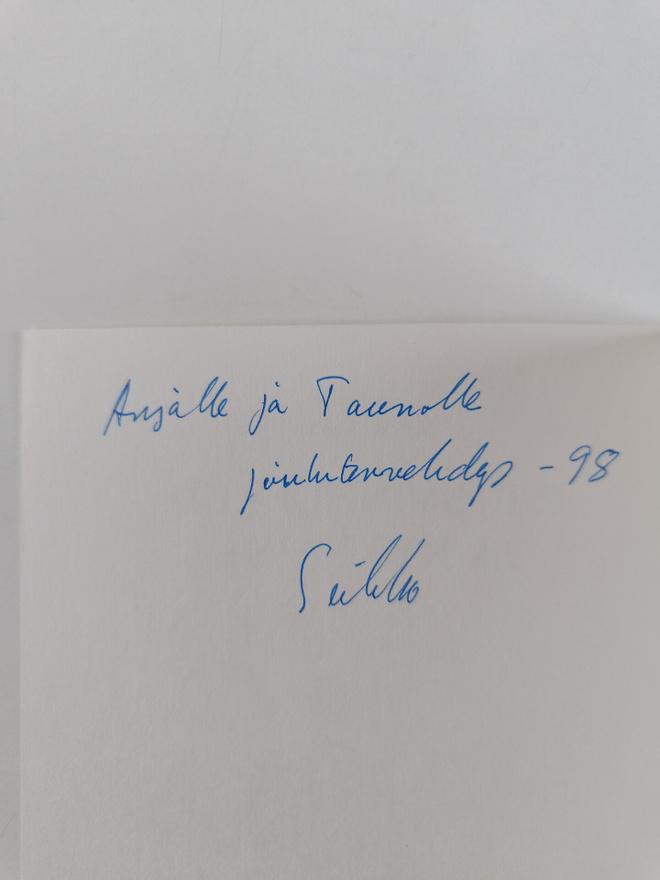 Anjalle ja Taunolle
joulutervehdys -98